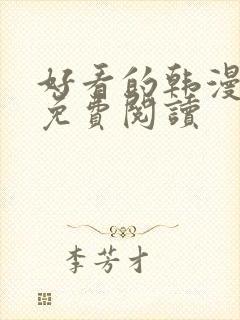 好看的韩漫
免費閱讀
李芳才